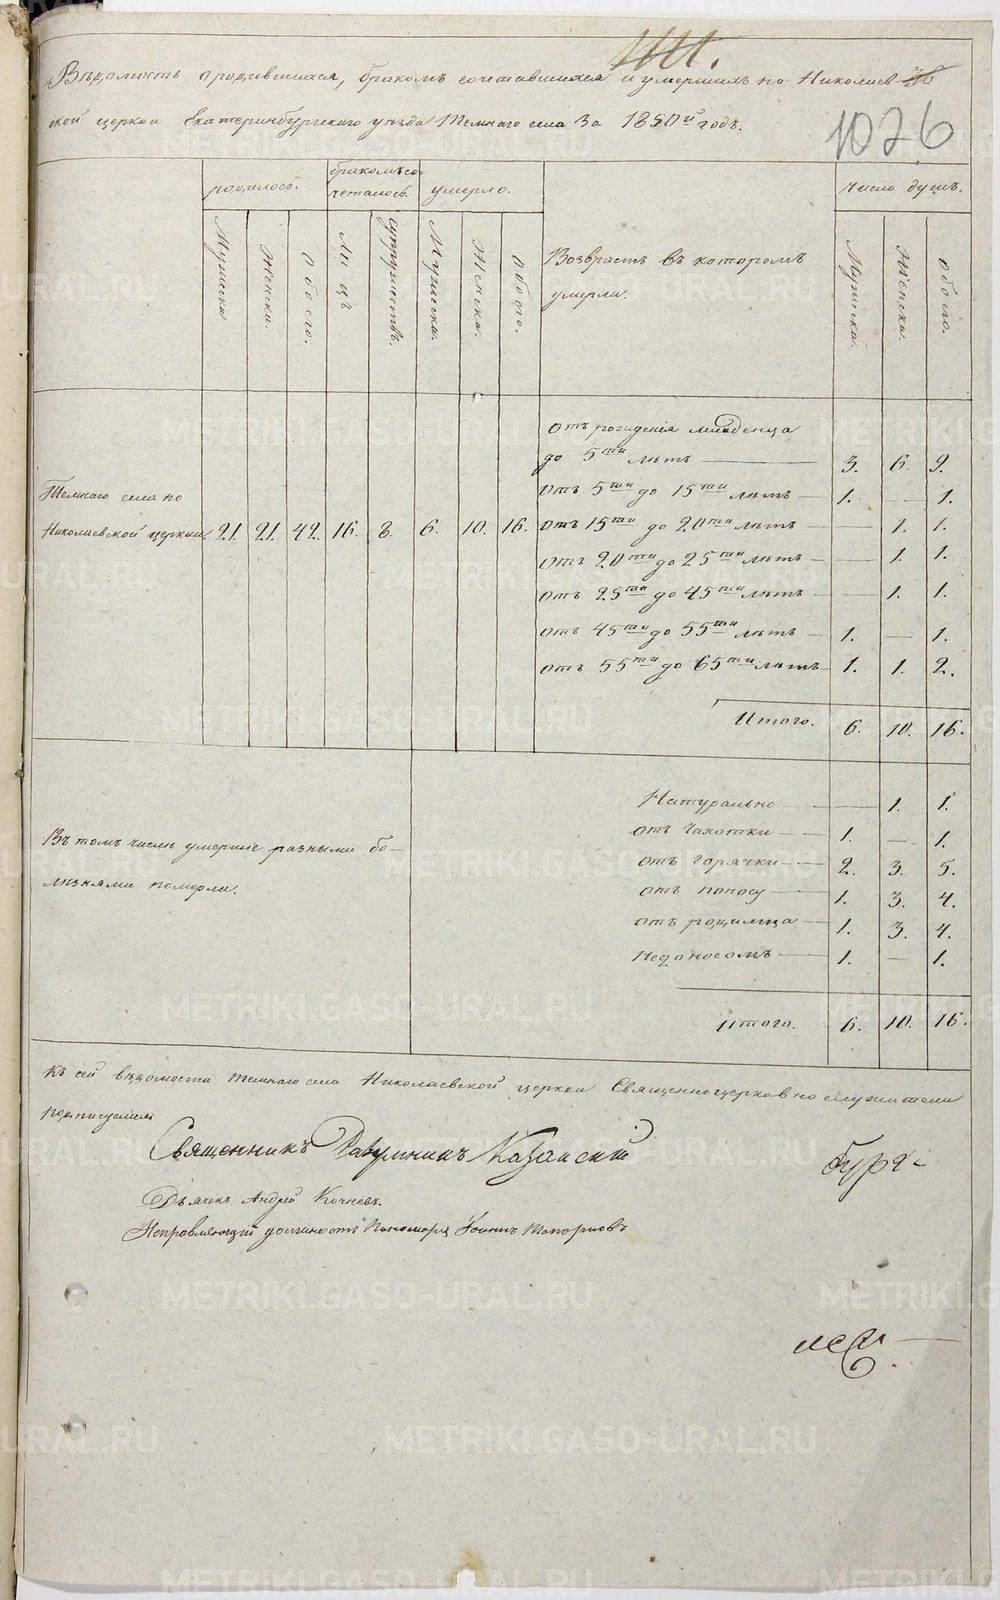 Вѣдомость о родившихся, бракомъ сочетавшихся и умершихъ по Николаев-
ской церкви Екатеринбургскаго уѣзда Темнаго села За 1850й годъ.
1026
родилось.
бракомъ со-
четалось.
умерло.
Число душъ.
Мужеска
Женска.
обоего.
Лицъ
супружествъ.
Мужеска.
Женска.
обоего.
Возврастъ въ которомъ
умерли.
Мужеска.
Женска.
обоего.
отъ рожденія младенца
до 5ти лѣтъ 3. 6. 9.
отъ 5ти до 15ти лѣтъ 1. — 1.
Темнаго села по
Николаевской церкви. 21. 21. 42. 16. 8. 6. 10. 16.
отъ 15ти до 20ти лѣтъ — 1. 1.
отъ 20ти до 25ти лѣтъ — 1. 1.
отъ 25ти до 45ти лѣтъ — 1. 1.
отъ 45ти до 55ти лѣтъ 1. — 1.
отъ 55ти до 65ти лѣтъ 1. 1. 2.
Итого. 6. 10. 16.
Въ томъ числѣ умершіе разными бо-
лѣзнями померли.
Натурально — 1. 1.
отъ Чахотки 1. — 1.
отъ горячки 2. 3. 5.
отъ поносу 1. 3. 4.
отъ родимца 1. 3. 4.
Недоносомъ 1. — 1.
итого. 6. 10. 16.
Къ сей вѣдомости Темнаго села Николаевской церкви Священноцерковнослужители
подписуемся
Священникъ Казанскій
Дьячекъ Андрей Кочневъ.
Исправляющій должность Пономаря Іоаннъ Топорковъ
METRIKI.GASO-URAL.RU